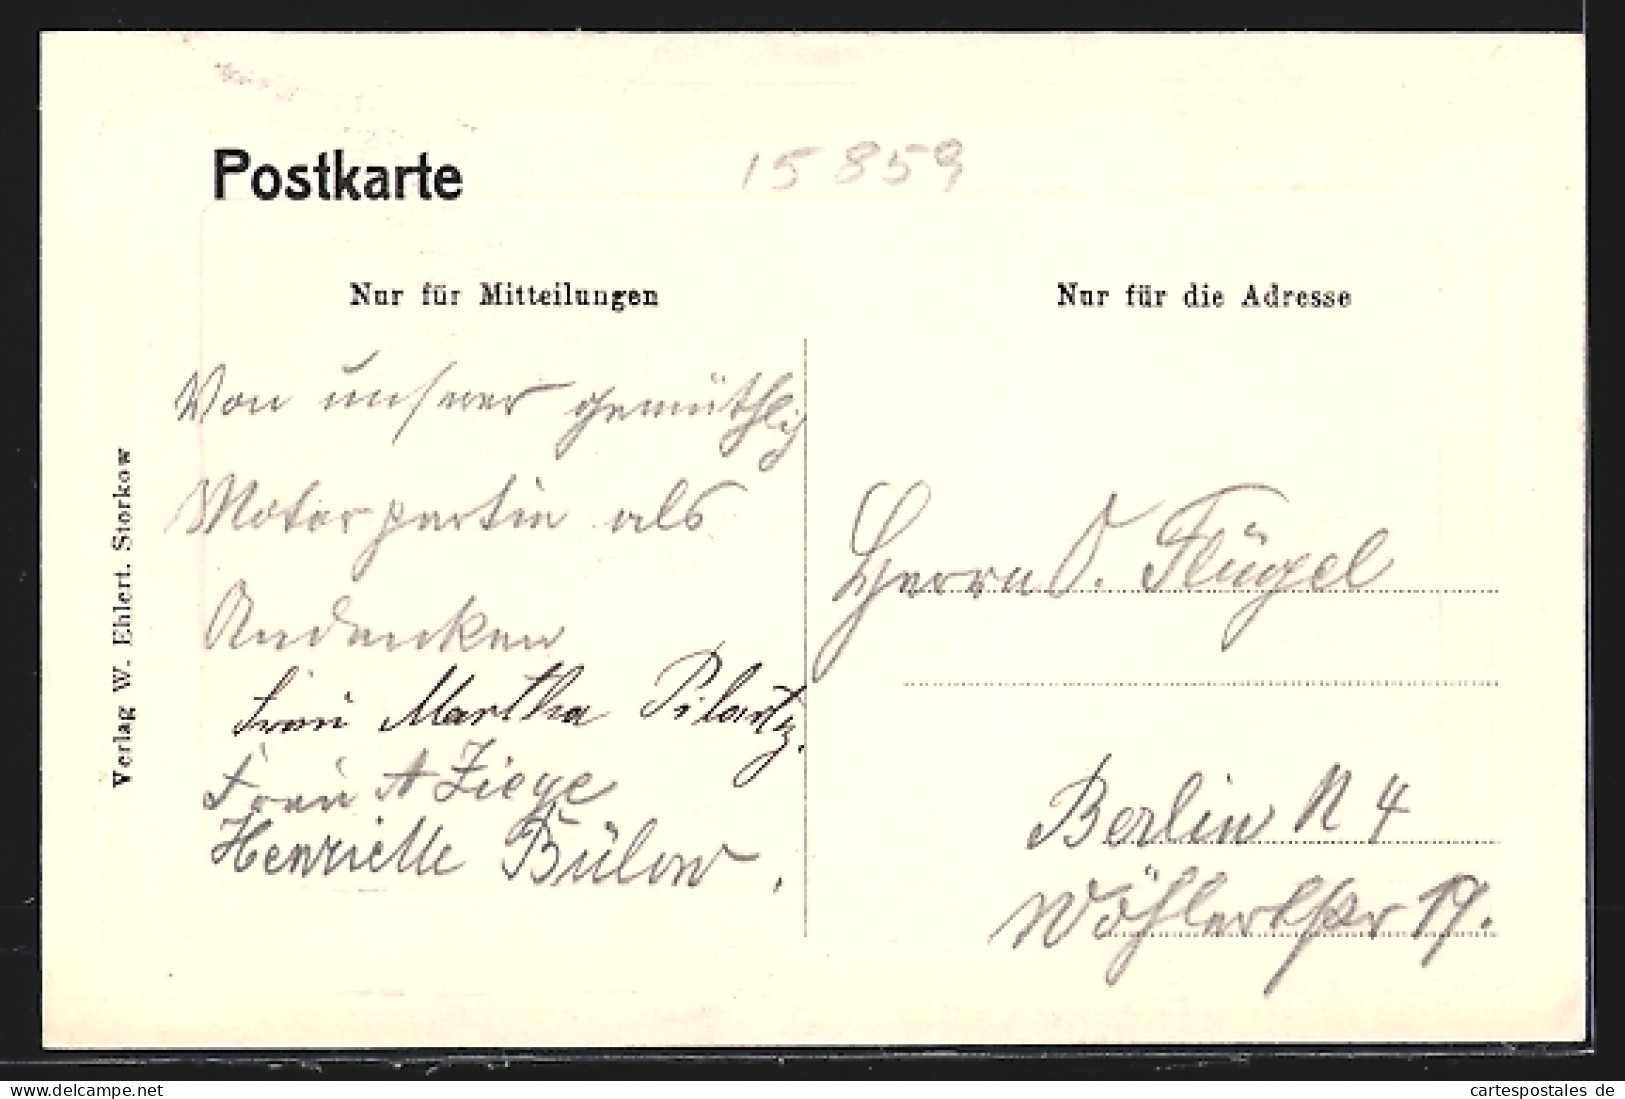 Postkarte
15859
Nur für Mitteilungen
Nur für die Adresse
Von unsrer gemüthlich
Motorpartie als
Andenken
Frau Martha
Frau A Ziege
Henriette Bülow.
Herrn O. Flügel
Berlin N 4
Wöhlertstr 19.
Verlag W. Ehlert. Storkow
cartespostales de